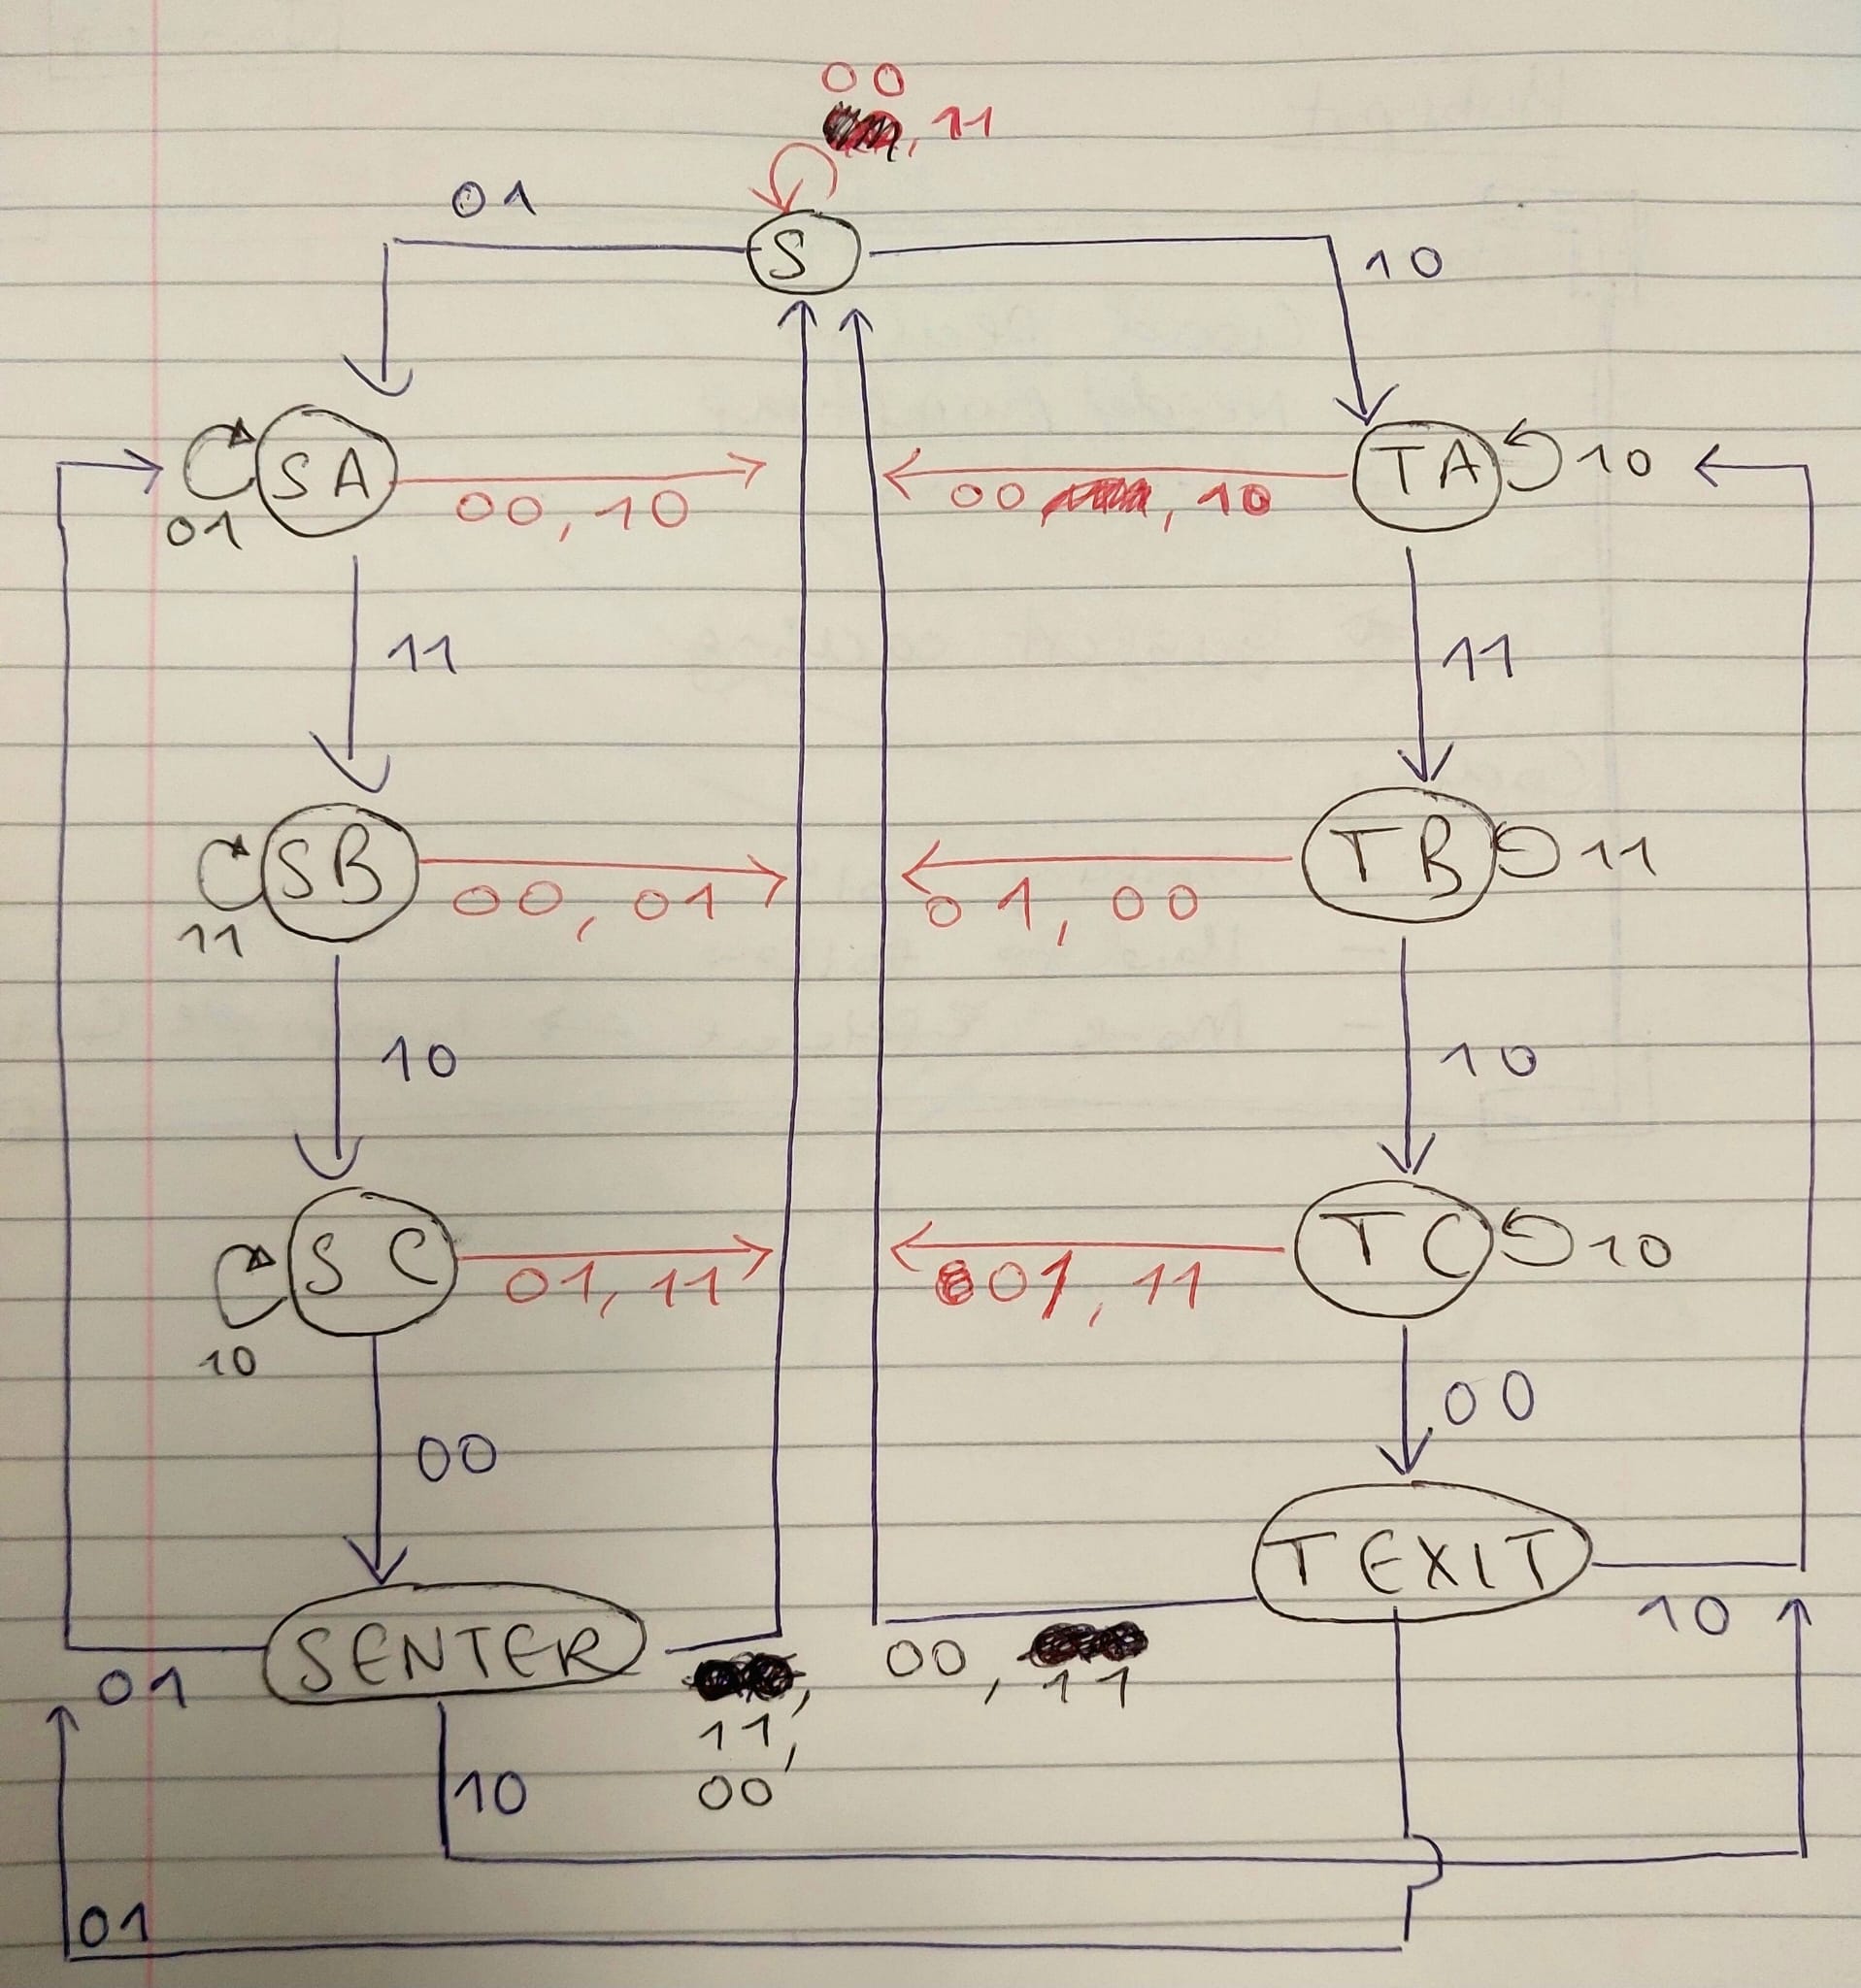 00
, 11
01
S
10
SA
01
00, 10
00 , 10
TA
10
11
11
SB
11
00, 01
01, 00
TB
11
10
10
SC
10
01, 11
01, 11
TC
10
00
00
SENTER
TEXIT
01
,
11,
00
00,
11
10
10
01